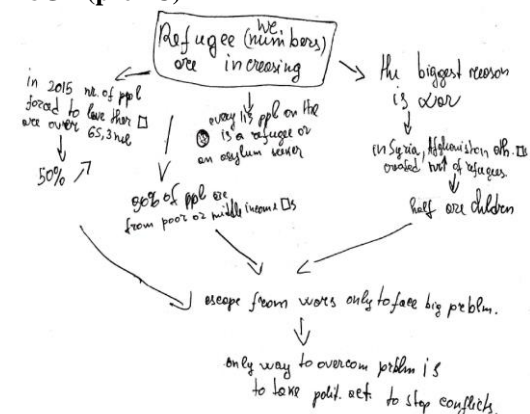 we,
Refugee (numbers)
are increasing
in 2015 nr. of ppl
forced to leave ther □
are over 65,3 mil
50% ↗
every 113 ppl on the
is a refugee or
an asylum seeker
90% of ppl are
from poor or middle income □s
the biggest reason
is war
in Syria, Afghanistan oth. □s
created of refugees.
half are children
escape from wars only to face big problm.
only way to overcom problm is
to take polit. act. to stop conflicts.